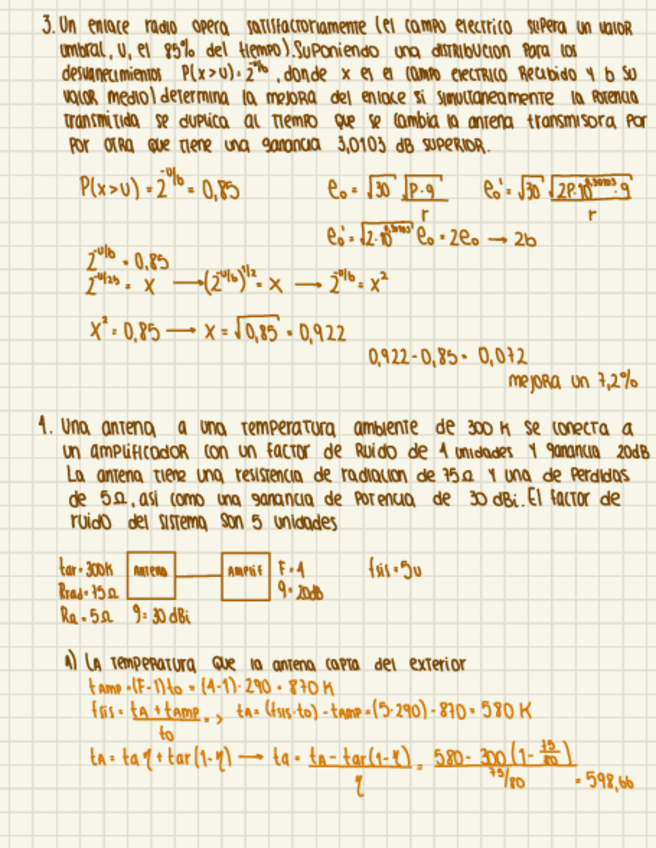 3. Un enlace radio opera satisfactoriamente (el campo electrico supera un valor
umbral, U, el 85% del tiempo). Suponiendo una distribucion para los
desvanecimientos P(x>u)=2^-u/b, donde x es el campo electrico Recibido y b su
valor medio) determina la mejora del enlace si simultaneamente la potencia
transmitida se duplica al tiempo que se cambia la antena transmisora por
por otra que tiene una ganancia 3,0103 dB superior.
P(x>u) = 2^-u/b = 0,85 e₀ = √30 √p·g / r e₀' = √30 √2p·10^0,30103·g / r
e₀' = √2·10^0,30103 e₀ = 2e₀ → 2b
2^-u/b = 0,85
2^-u/2b = x → (2^-u/b)^1/2 = x → 2^-u/b = x²
x² = 0,85 → x = √0,85 = 0,922
0,922 - 0,85 = 0,072
mejora un 7,2%
4. Una antena a una temperatura ambiente de 300 K se conecta a
un amplificador con un factor de Ruido de 4 unidades y ganancia 20dB
La antena tiene una resistencia de radiacion de 75Ω y una de perdidas
de 5Ω, asi como una ganancia de potencia de 30 dBi. El factor de
ruido del sistema son 5 unidades
tar=300K Antena Amplif F=4 fsis=5u
Rrad=75Ω g=20dB
Ra=5Ω g=30dBi
a) La temperatura que la antena capta del exterior
tamp=(F-1)to = (4-1)·290 = 870 K
fsis = tA + tamp / to => tA = (fsis·to) - tamp = (5·290) - 870 = 580 K
tA = ta η + tar(1-η) → ta = tA - tar(1-η) / η = 580 - 300(1 - 75/80) / 75/80 = 598,66